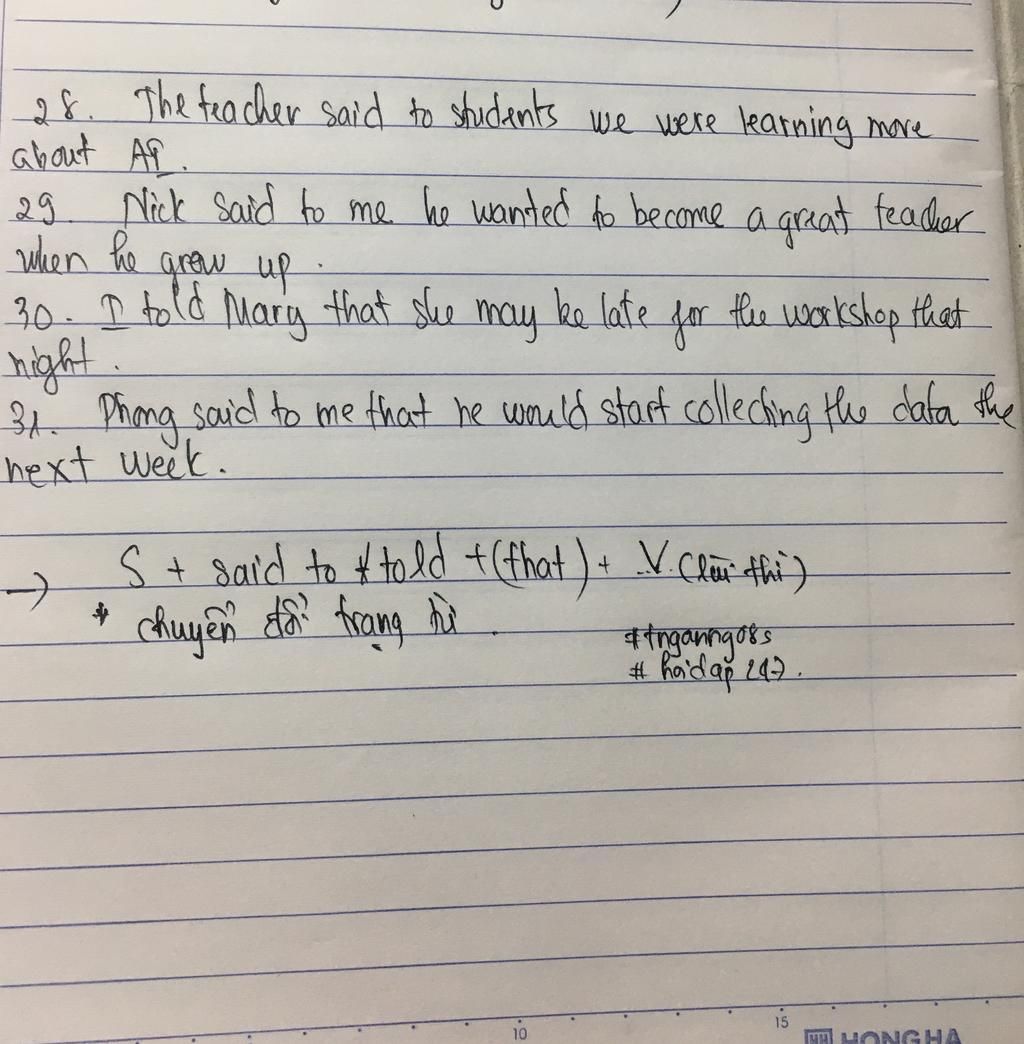 28. The teacher said to students we were learning more
about AI.
29. Nick said to me he wanted to become a great teacher
when he grew up.
30. I told Mary that she may be late for the workshop that
night.
31. Phong said to me that he would start collecting the data the
next week.
→ S + said to / told + (that) + V (lùi thì)
* chuyển đổi trạng từ.
#tnganng08s
# hoidap 247.
10
15
HH HONG HA